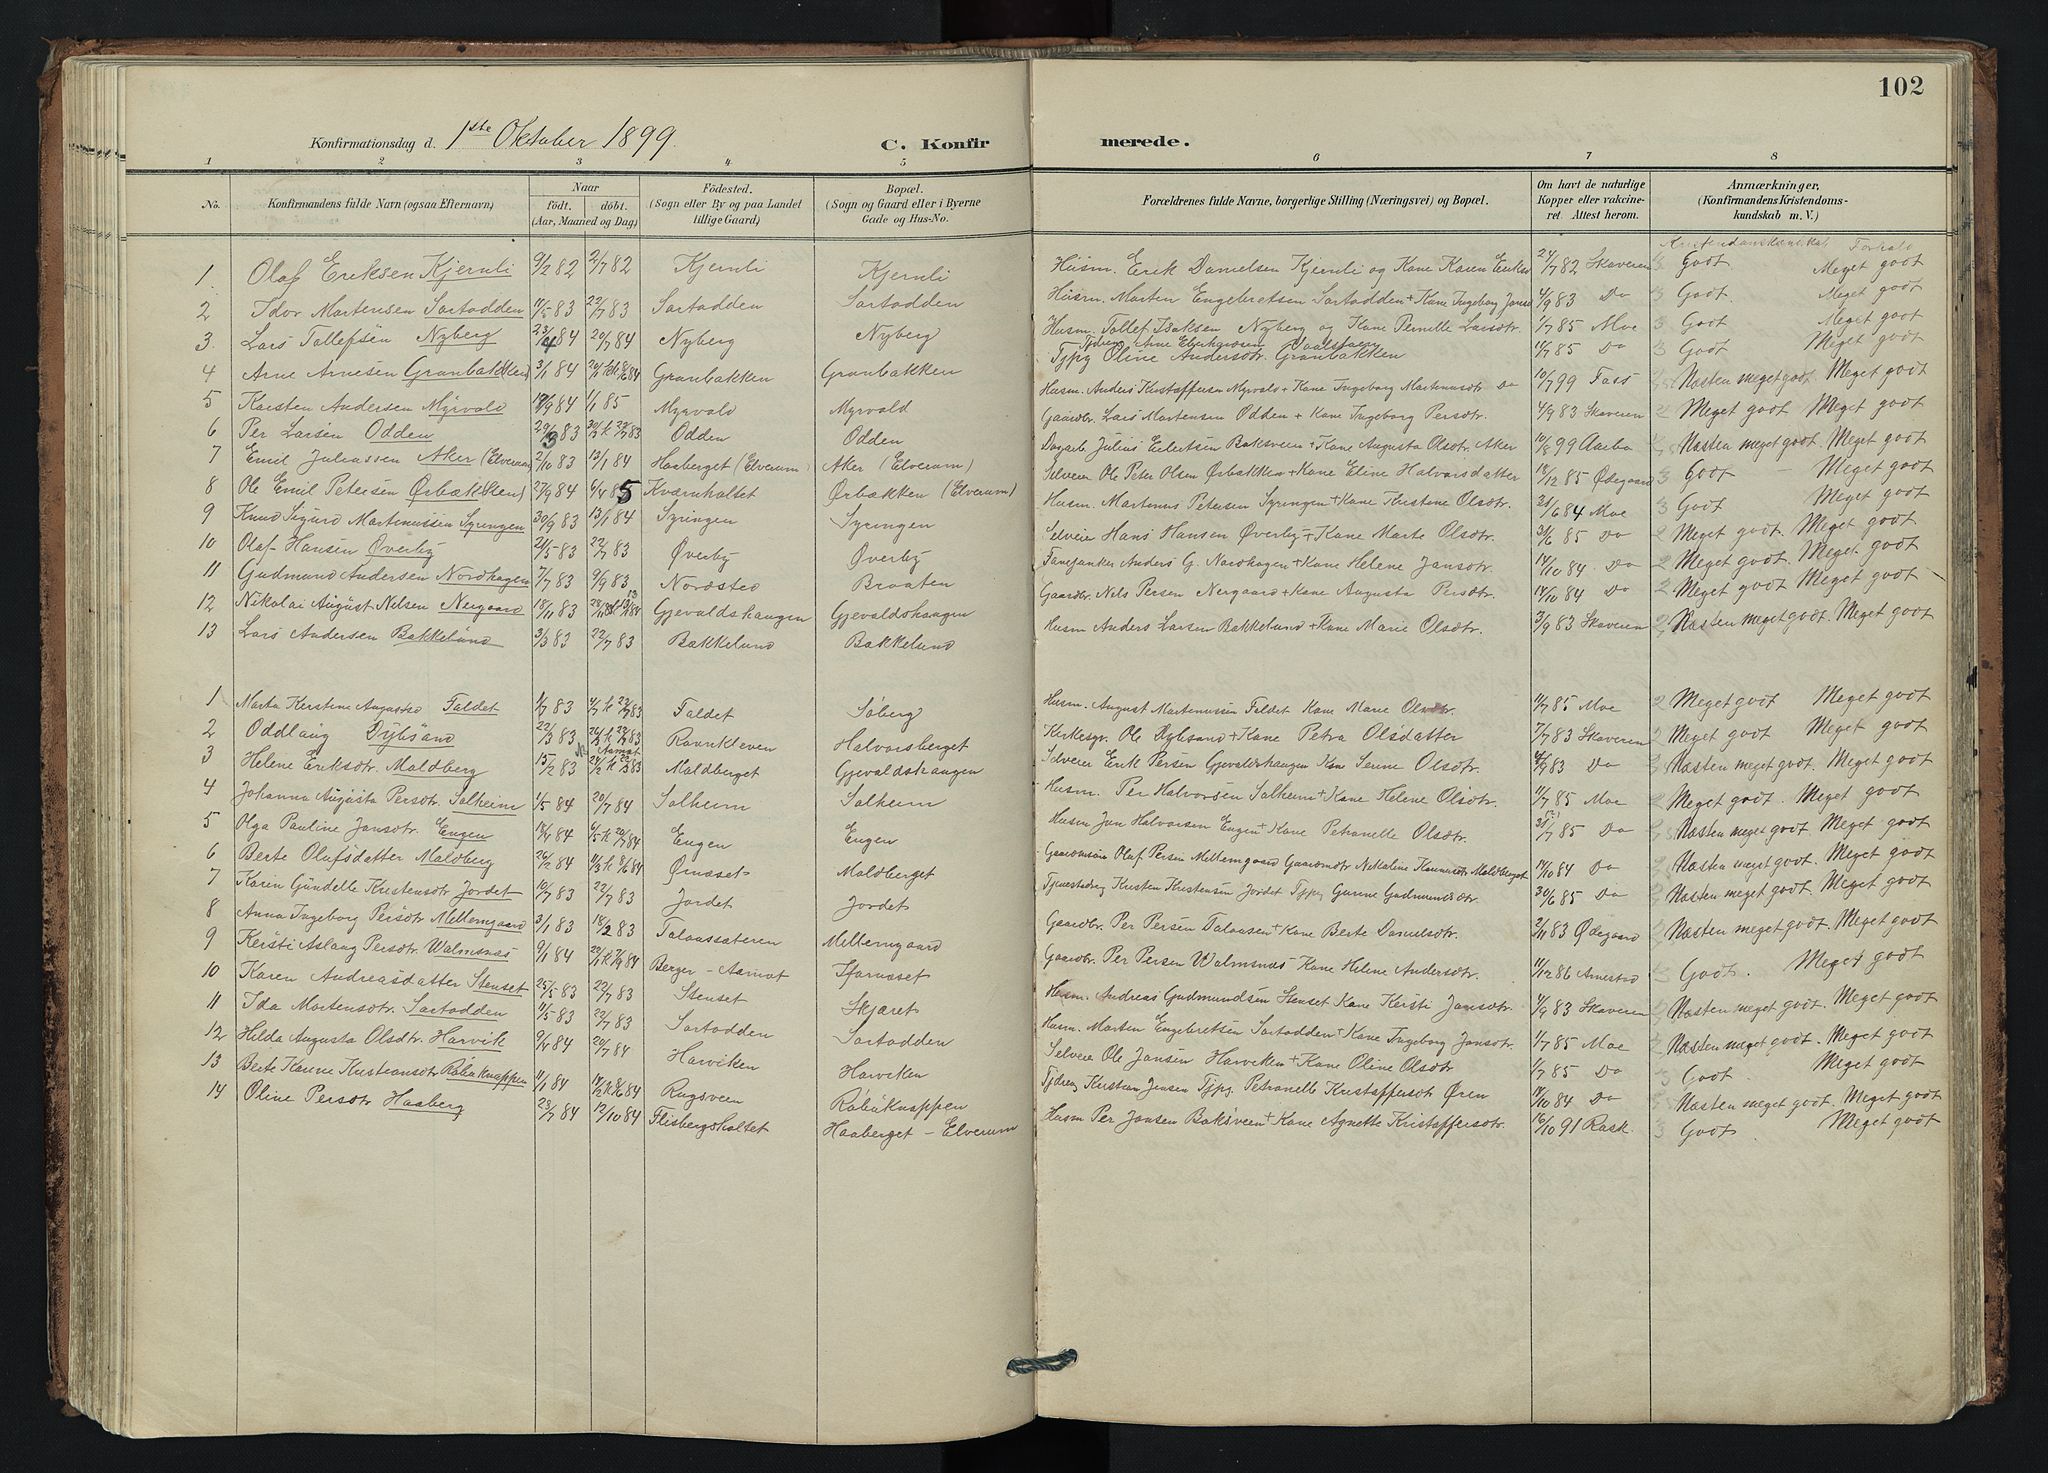 102
Konfirmationsdag d. 1ste Oktober 1899. C. Konfirmerede.
1 2 3 4 5 6 7 8
No. Konfirmandens fulde Navn (ogsaa Efternavn) Naar Födt. döbt. (Aar, Maaned og Dag) Födested. (Sogn eller By og paa Landet tillige Gaard) Bopæl. (Sogn og Gaard eller i Byerne Gade og Hus-No. Forældrenes fulde Navne, borgerlige Stilling (Næringsvei) og Bopæl. Om havt de naturlige Kopper eller vakcineret. Attest herom. Anmærkninger, (Konfirmandens Kristendomskundskab m. V.)
1 Olaf Eriksen Kjernli 9/2 82 2/7 82 Kjernli Kjernli Husm. Erik Danielsen Kjernli og Kone Karen Eriksd 24/7 82 Skaveren 3 Godt Meget godt
2 Idor Martensen Sortodden 11/5 83 22/7 83 Sortodden Sortodden Husm. Marten Engebretsen Sortodden + Kone Ingeborg Jansd 4/9 83 Do 3 Godt Meget godt
3. Lars Tollefsen Nyberg 23/4 84 20/7 84 Nyberg Nyberg Husm. Tollef Isaksen Nyberg og Kone Pernille Larsdtr. 1/7 85 Moe 3 Godt Meget godt
4 Arne Arnesen Granbakken 3/1 84 Granbakken Granbakken Tjpg Oline Andersdtr. Granbakken 11/7 85 Do 3 Godt Meget godt
5 Karsten Andersen Myrvold 17/9 84 1/1 85 Myrvold Myrvold Husm. Anders Kristoffersen Myrvold + Kone Ingeborg Martinusdtr Do 10/7 99 Foss Næsten meget godt Meget godt
6 Per Larsen Odden 29/3 83 Odden Odden Gaardbr. Lars Martensen Odden + Kone Ingeborg Persdtr. 4/9 83 Skaveren 2 Meget godt Meget godt
7 Emil Juliussen Aker (Elverum) 2/10 83 13/1 84 Haaberget (Elverum) Aker (Elverum) Dagarb. Julius Eilertsen Baksveen + Kone Augusta Olsdtr. Aker 10/8 99 Aarbo Næsten meget godt. Meget godt
8 Ole Emil Petersen Ørbæk(ken) 27/9 84 6/4 85 Kværnholtet Ørbækken (Elverum) Selveier Ole Peter Olsen Ørbakken + Kone Eline Halvorsdatter 18/12 85 Ødegaard 3 Godt Meget godt
9 Knud Sigurd Martinussen Syringen 30/9 83 13/1 84 Syringen Syringen Husm. Martinus Petersen Syringen + Kone Kristine Olsdtr. 21/6 84 Moe 3 Godt Meget godt
10 Olaf Hansen Øverby 21/5 83 22/7 83 Øverby Øverby Selveier Hans Hansen Øverby + Kone Marte Olsdtr. 31/6 85 Do 2 Meget godt. Meget godt
11 Gudmund Andersen Nordhagen 7/7 83 9/9 83 Nordsted Braaten Fanejunker Anders G. Nordhagen + Kone Helene Jansdtr. 14/10 84 Do 2 Meget godt. Meget godt
12 Nikolai August Nilsen Nergaard 18/11 83 Gjevaldshaugen Gjevaldshaugen Gaardbr. Nils Persen Nergaard + Kone Augusta Persdtr. 14/10 84 Do 2 Meget godt Meget godt
13 Lars Andersen Bakkelund 3/3 83 22/7 83 Bakkelund Bakkelund Husm Anders Larsen Bakkelund + Kone Marie Olsdtr. 3/9 83 Skaveren Næsten meget godt. Meget godt
1 Marta Kerstine Augustsd Faldet 1/7 83 Faldet Søberg Husm. August Martinussen Faldet Kone Marie Olsdtr. 11/7 85 Moe 2 Meget godt Meget godt
2 Oddlaug Dybsand 22/3 83 Ravnkleven Halvorsberget Kirkesgr. Ole Dybsand + Kone Petra Olsdatter 7/7 83 Skaveren 2 Meget godt Meget godt
3 Helene Eriksdtr. Moldberg 15/2 83 Aamot Moldberget Gjevaldshaugen Selveier Erik Persen Gjevaldshaugen Kone Serine Olsdtr. 4/9 83 Do Næsten meget godt. Meget godt
4 Johanna Augusta Persdtr. Solheim 1/5 84 20/7 84 Solheim Solheim Husm. Per Halvorsen Solheim + Kone Helene Olsdtr. 11/7 85 Moe 2 Meget godt. Meget godt
5 Olga Pauline Jansdtr. Engen 18/4 84 Engen Engen Husm Jan Halvorsen Engen + Kone Petronelle Olsdtr. 31/7 85 Do Næsten meget godt. Meget godt
6 Berte Olafsdatter Moldberg 26/2 84 Ørnæset Moldberget Gaardmsøn Olaf Persen Mellemgaard Gaardmdtr Nikoline Moldberget 14/10 84 Do Næsten meget godt. Meget godt
7 Karin Gundelle Kristensdtr Jordet 10/7 83 22/7 83 Jordet Jordet Tjenestedreng Kristen Kristensen Jordet Tjpg Gurine Gudmundsdtr. 30/6 85 Do Næsten meget godt. Meget godt
8 Anna Ingeborg Persdtr Mellemgaard 3/1 83 18/2 83 Talaassæteren Mellemgaard Gaardbr. Per Persen Talaasen + Kone Berte Danielsdtr. 2/11 83 Ødegaard Næsten meget godt. Meget godt
9 Kersti Aslaug Persdtr. Walmsnæs 9/1 84 Berger - Aamot Gaardbr. Per Persen Walmsnæs Kone Helene Andersdtr. 11/12 86 Arnestad 3 Godt. Meget godt
10 Karen Andreasdatter Stenset 25/5 83 22/7 83 Stenset Skjæret Husm. Andreas Gudmundsen Stenset Kone Kersti Jansdtr. 4/9 83 Skaveren Næsten meget godt. Meget godt
11 Ida Mortensdtr. Sortodden 11/5 83 22/7 83 Sortodden Sortodden Husm. Marten Engebretsen Sortodden + Kone Ingeborg Jansdtr. 1/7 85 Moe Næsten meget godt. Meget godt
12 Hilda Augusta Olsdtr. Harvik 9/4 84 20/7 84 Harviken Harviken Selveier Ole Jansen Harviken + Kone Oline Olsdtr 1/7 85 Do 3 Godt. Meget godt
13 Berte Karine Kristiansdtr Røbuknappen 11/1 84 Rugsveen Røbuknappen Tjdreng Kristian Jensen Tjpg. Petronelle Kristoffersdtr Ören 14/10 84 Do Næsten meget godt. Meget godt
14 Oline Persdtr Haaberg 28/7 84 12/10 84 Flisbergsholtet Haaberget - Elverum Husm Per Jansen Baksveen + Kone Agnette Kristoffersdtr. 16/10 91 Rask. 3 Godt. Meget godt